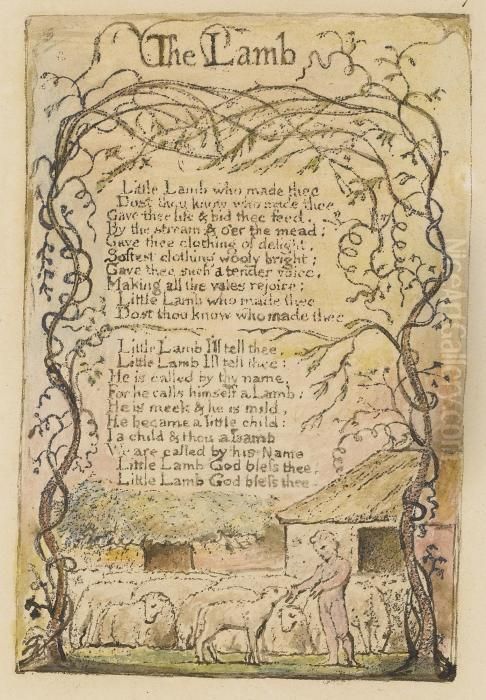 The Lamb
Little Lamb who made thee
Dost thou know who made thee
Gave thee life & bid thee feed,
By the stream & o'er the mead;
Gave thee clothing of delight,
Softest clothing wooly bright;
Gave thee such a tender voice,
Making all the vales rejoice;
Little Lamb who made thee
Dost thou know who made thee
Little Lamb I'll tell thee,
Little Lamb I'll tell thee:
He is called by thy name,
For he calls himself a Lamb:
He is meek & he is mild,
He became a little child:
I a child & thou a lamb
We are called by his Name
Little Lamb God bless thee,
Little Lamb God bless thee